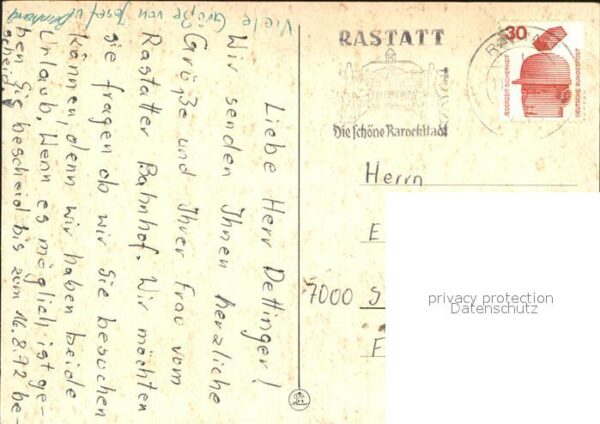 Viele Grüße von Josef u. Bernhard
Liebe Herr Dettinger!
Wir senden Ihnen herzliche
Grüße und Ihrer Frau vom
Rastatter Bahnhof. Wir möchten
sie fragen ob wir Sie besuchen
können, denn wir haben beide
Urlaub. Wenn es möglich ist ge-
ben Sie bescheid bis zum 16.8.72 be-
scheid.
RASTATT
Die schöne Barockstadt
30
JEDERZEIT SICHERHEIT
DEUTSCHE BUNDESPOST
Herrn
E
7000 S
F
privacy protection
Datenschutz